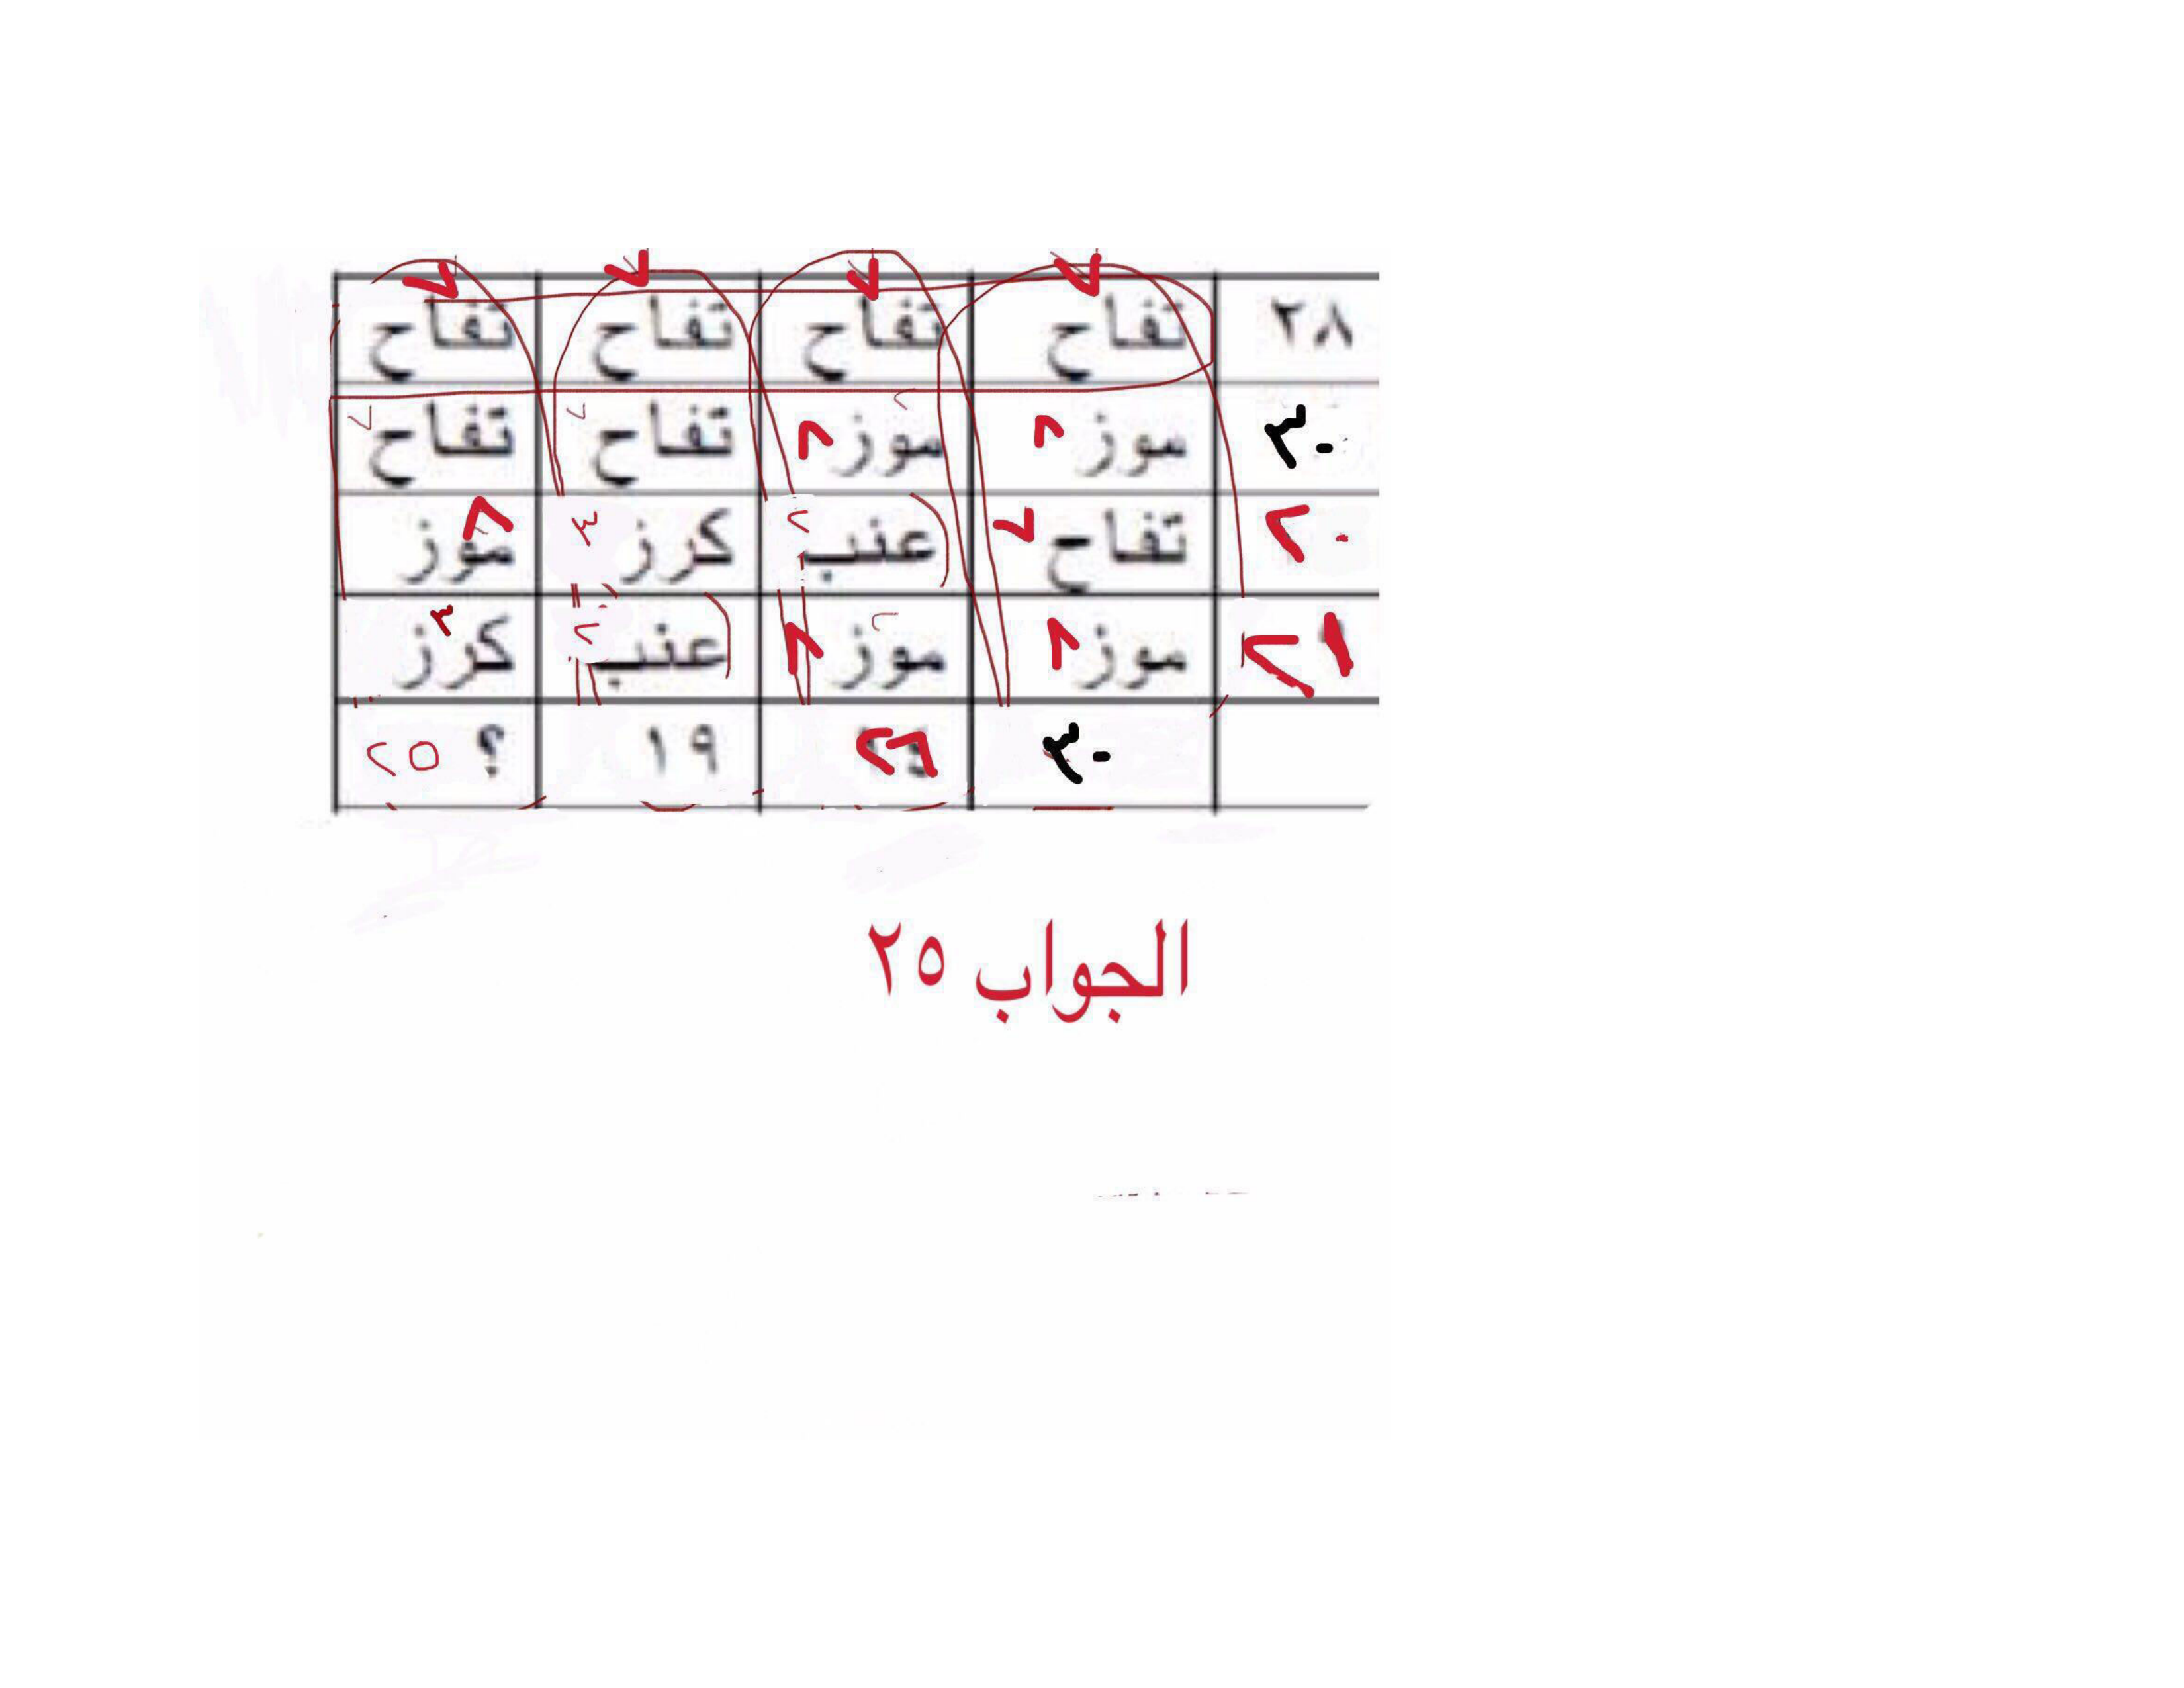 ٢٨ تفاح ٧ تفاح ٧ تفاح ٧ تفاح ٧
٣٠ موز ٨ موز ٨ تفاح ٧ تفاح ٧
٢٠ تفاح ٧ عنب ٢ كرز ٣ موز ٨
٢١ موز ٨ موز ٨ عنب ٢ كرز ٣
٣٠ ٢٦ ١٩ ؟ ٢٥
الجواب ٢٥